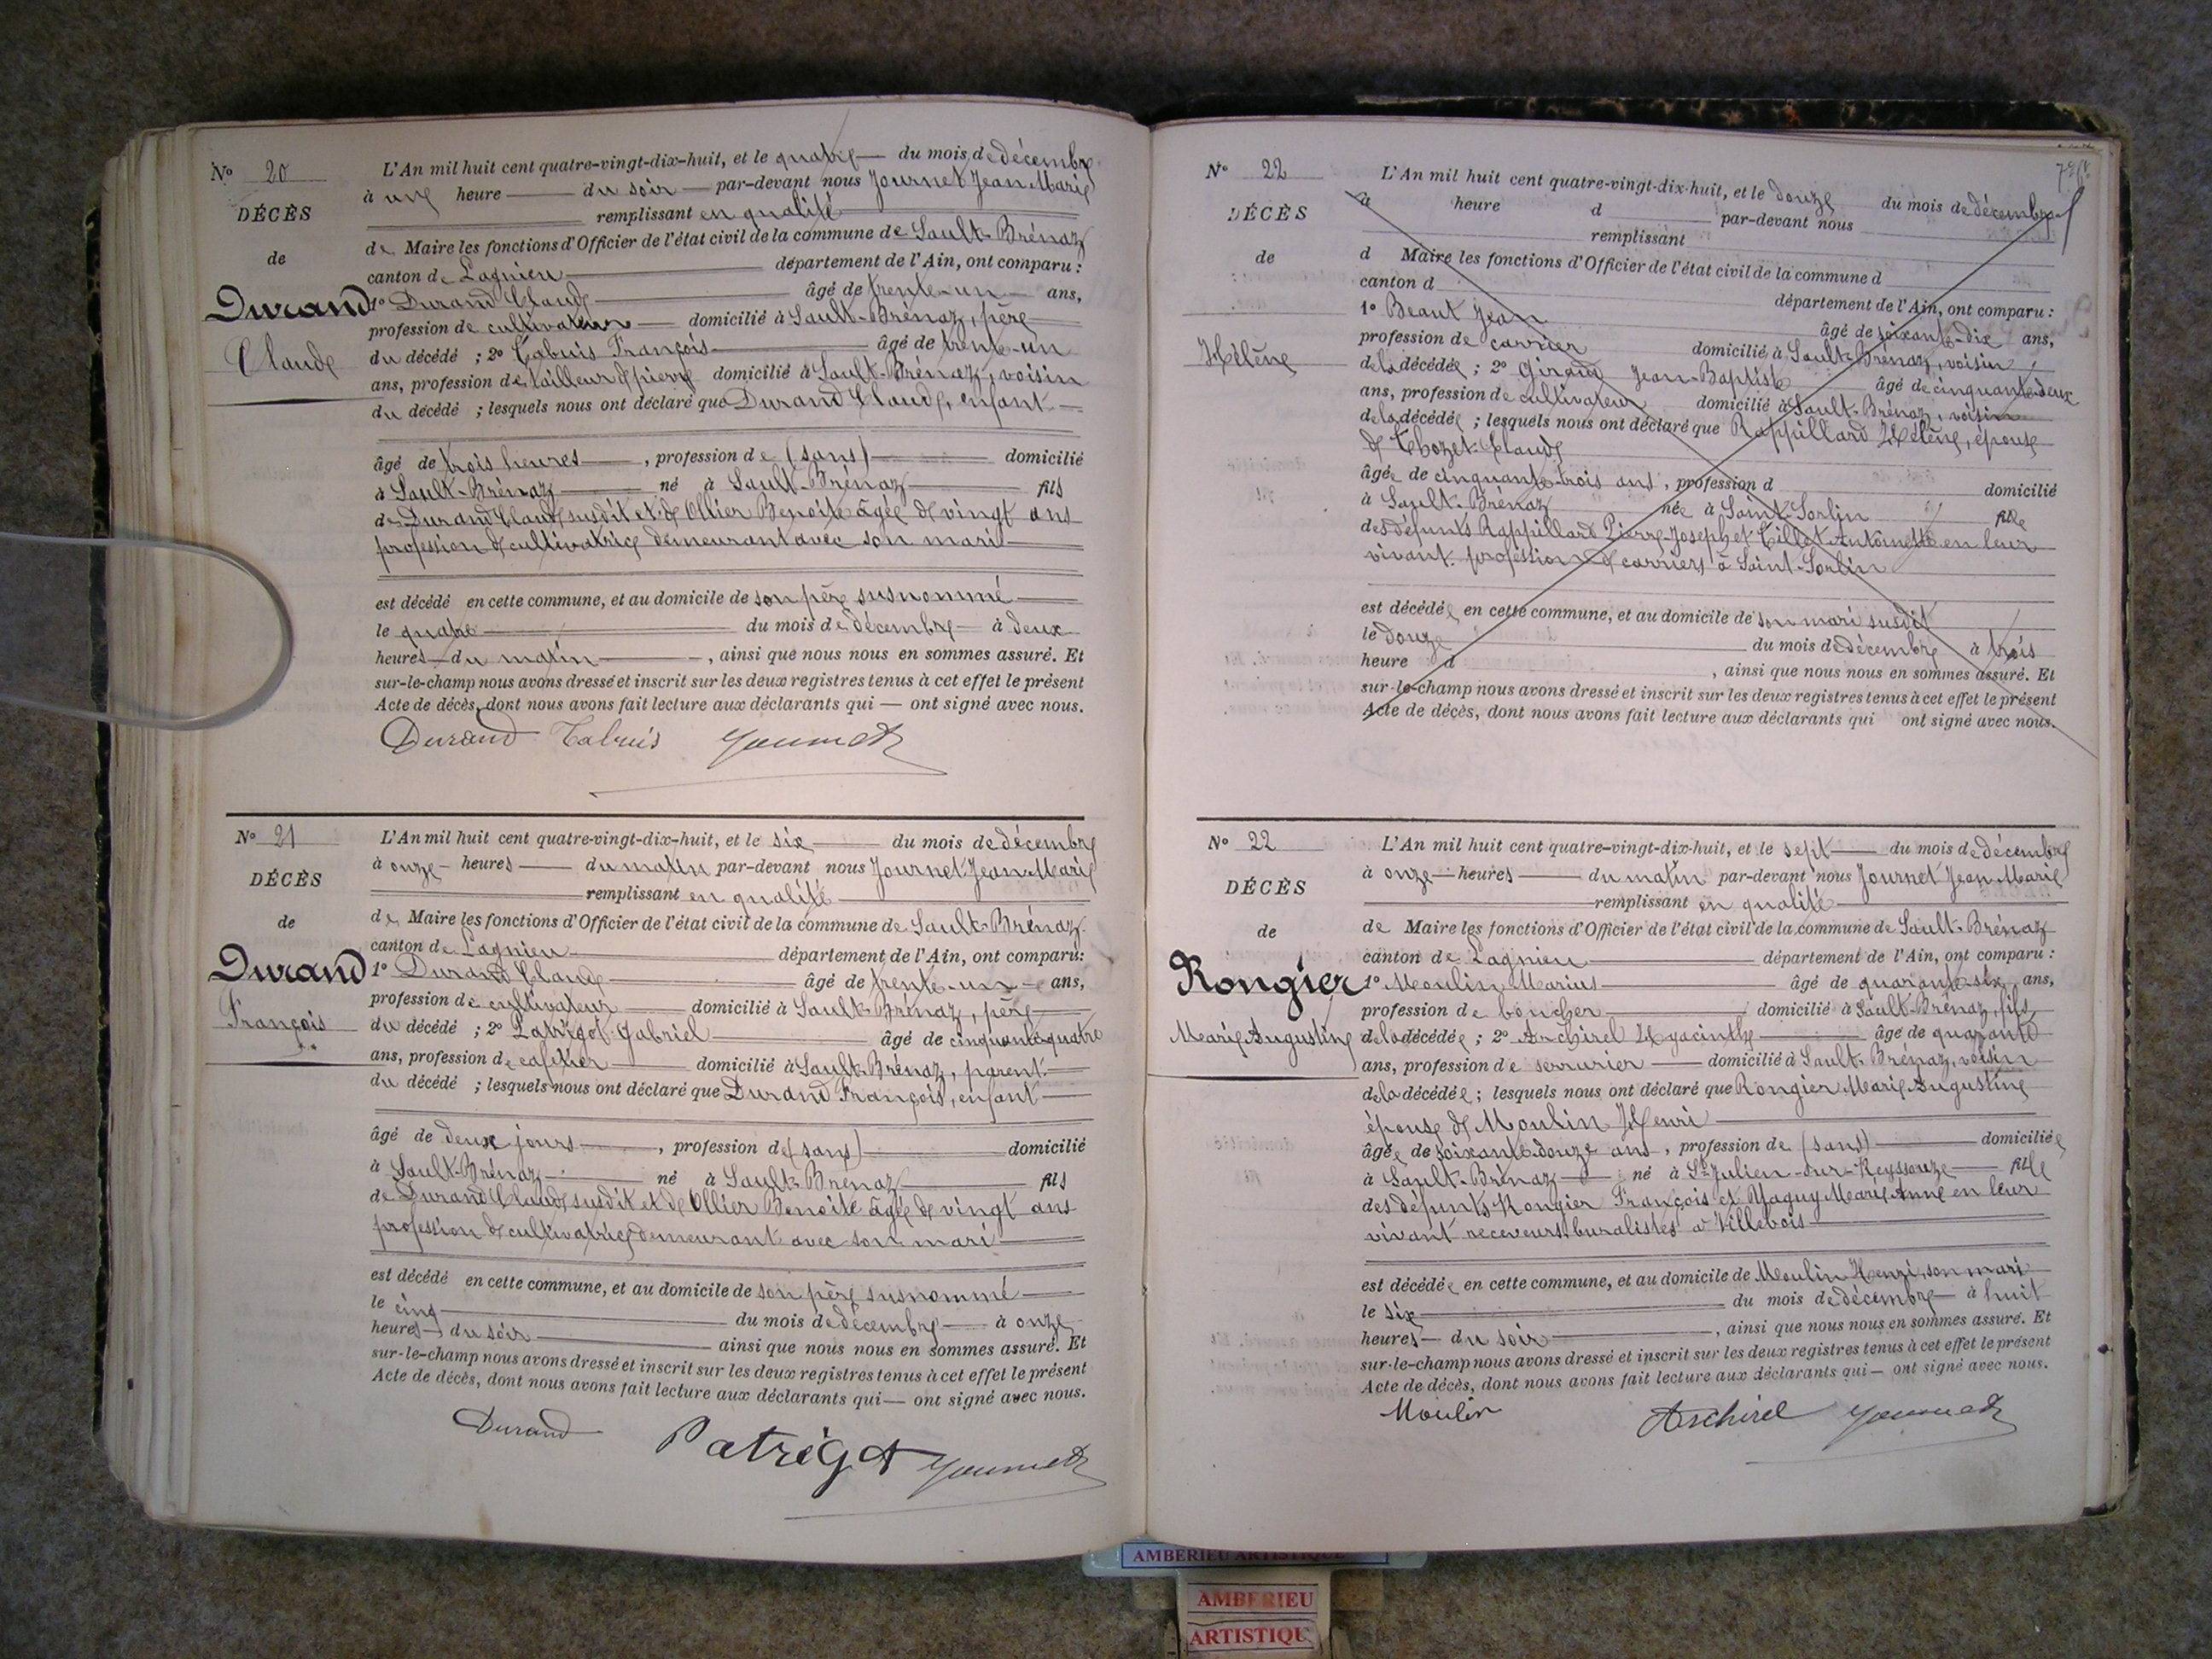 N° 20
DÉCÈS
de
Durand
Claude
L'An mil huit cent quatre-vingt-dix-huit, et le quatre du mois de décembre
à une heure du soir par-devant nous Journet Jean Marie
remplissant en qualité
de Maire les fonctions d'Officier de l'état civil de la commune de Sault-Brénaz
canton de Lagnieu département de l'Ain, ont comparu :
1° Durand Claude âgé de trente-un ans,
profession de cultivateur domicilié à Sault-Brénaz, père
du décédé ; 2° Cabuis François âgé de trente-un
ans, profession de tailleur de pierre domicilié à Sault-Brénaz, voisin
du décédé ; lesquels nous ont déclaré que Durand Claude, enfant
âgé de trois heures, profession de (sans) domicilié
à Sault-Brénaz né à Sault-Brénaz fils
de Durand Claude susdit et de Ollier Benoite âgée de vingt ans
profession de cultivatrice demeurant avec son mari
est décédé en cette commune, et au domicile de son père susnommé
le quatre du mois de décembre à deux
heures du matin, ainsi que nous nous en sommes assuré. Et
sur-le-champ nous avons dressé et inscrit sur les deux registres tenus à cet effet le présent
Acte de décès, dont nous avons fait lecture aux déclarants qui — ont signé avec nous.
Durand Cabuis Journet
N° 21
DÉCÈS
de
Durand
François
L'An mil huit cent quatre-vingt-dix-huit, et le six du mois de décembre
à onze heures du matin par-devant nous Journet Jean Marie
remplissant en qualité
de Maire les fonctions d'Officier de l'état civil de la commune de Sault-Brénaz
canton de Lagnieu département de l'Ain, ont comparu :
1° Durand Claude âgé de trente-un ans,
profession de cultivateur domicilié à Sault-Brénaz, père
du décédé ; 2° Patrigot Gabriel âgé de cinquante quatre
ans, profession de cafetier domicilié à Sault-Brénaz, parent
du décédé ; lesquels nous ont déclaré que Durand François, enfant
âgé de deux jours, profession de (sans) domicilié
à Sault-Brénaz né à Sault-Brénaz fils
de Durand Claude susdit et de Ollier Benoite âgée de vingt ans
profession de cultivatrice demeurant avec son mari
est décédé en cette commune, et au domicile de son père susnommé
le cinq du mois de décembre à onze
heures du soir ainsi que nous nous en sommes assuré. Et
sur-le-champ nous avons dressé et inscrit sur les deux registres tenus à cet effet le présent
Acte de décès, dont nous avons fait lecture aux déclarants qui — ont signé avec nous.
Durand Patrigot Journet
N° 22
DÉCÈS
de
Hélène
L'An mil huit cent quatre-vingt-dix-huit, et le douze du mois de décembre
à heure d par-devant nous
remplissant
d Maire les fonctions d'Officier de l'état civil de la commune d
canton d département de l'Ain, ont comparu :
1° Beaut Jean âgé de soixante-dix ans,
profession de carrier domicilié à Sault-Brénaz, voisin
de la décédée ; 2° Giraud Jean-Baptiste âgé de cinquante deux
ans, profession de cultivateur domicilié à Sault-Brénaz, voisin
de la décédée ; lesquels nous ont déclaré que Rappillard Hélène, épouse
de Chozet Claude
âgée de cinquante-trois ans, profession d domicilié
à Sault-Brénaz née à Saint-Sorlin fille
des défunts Rappillard Pierre-Joseph et Billet Antoinette en leur
vivant profession de carriers à Saint-Sorlin
est décédée en cette commune, et au domicile de son mari susdit
le douze du mois de décembre à trois
heure d, ainsi que nous nous en sommes assuré. Et
sur-le-champ nous avons dressé et inscrit sur les deux registres tenus à cet effet le présent
Acte de décès, dont nous avons fait lecture aux déclarants qui ont signé avec nous.
N° 22
DÉCÈS
de
Rongier
Marie Augustine
L'An mil huit cent quatre-vingt-dix-huit, et le sept du mois de décembre
à onze heures du matin par-devant nous Journet Jean Marie
remplissant en qualité
de Maire les fonctions d'Officier de l'état civil de la commune de Sault-Brénaz
canton de Lagnieu département de l'Ain, ont comparu :
1° Moulin Marius âgé de quarante-six ans,
profession de boucher domicilié à Sault-Brénaz, fils
de la décédée ; 2° Aschirel Hyacinthe âgé de quarante
ans, profession de serrurier domicilié à Sault-Brénaz, voisin
de la décédée ; lesquels nous ont déclaré que Rongier Marie Augustine
épouse de Moulin Henri
âgée de soixante-douze ans, profession de (sans) domiciliée
à Sault-Brénaz né à St Julien-sur-Reyssouze fille
des défunts Rongier François et Yaguy Marie Anne en leur
vivant receveurs buralistes à Villebois
est décédée en cette commune, et au domicile de Moulin Henri, son mari
le six du mois de décembre à huit
heures du soir, ainsi que nous nous en sommes assuré. Et
sur-le-champ nous avons dressé et inscrit sur les deux registres tenus à cet effet le présent
Acte de décès, dont nous avons fait lecture aux déclarants qui — ont signé avec nous.
Moulin Aschirel Journet
AMBERIEU ARTISTIQUE
AMBERIEU
ARTISTIQU